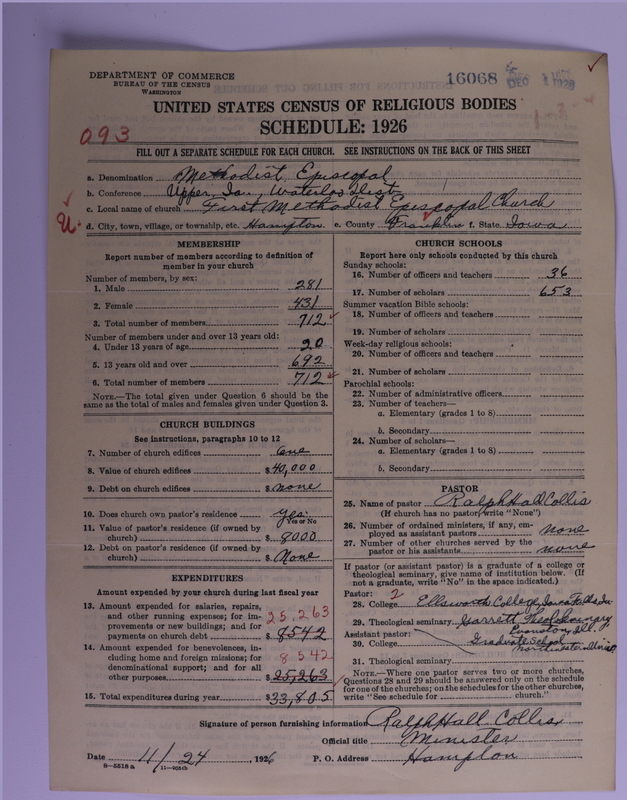 DEPARTMENT OF COMMERCE
BUREAU OF THE CENSUS
WASHINGTON
16068
DEC 1 1926
UNITED STATES CENSUS OF RELIGIOUS BODIES
SCHEDULE: 1926
093
FILL OUT A SEPARATE SCHEDULE FOR EACH CHURCH. SEE INSTRUCTIONS ON THE BACK OF THIS SHEET
a. Denomination Methodist Episcopal
b. Conference Upper Ia, Waterloo Dist.
c. Local name of church First Methodist Episcopal Church
d. City, town, village, or township, etc. Hampton e. County Franklin f. State Iowa
MEMBERSHIP
Report number of members according to definition of
member in your church
Number of members, by sex:
1. Male 281
2. Female 431
3. Total number of members 712
Number of members under and over 13 years old:
4. Under 13 years of age 20
5. 13 years old and over 692
6. Total number of members 712
NOTE.—The total given under Question 6 should be
same as the total of males and females given under Question 3.
CHURCH BUILDINGS
See instructions, paragraphs 10 to 12
7. Number of church edifices One
8. Value of church edifices $40,000
9. Debt on church edifices $ None
10. Does church own pastor's residence Yes
Yes or No
11. Value of pastor's residence (if owned by
church) $ 8000
12. Debt on pastor's residence (if owned by
church) $ None
EXPENDITURES
Amount expended by your church during last fiscal year
13. Amount expended for salaries, repairs,
and other running expenses; for im-
provements or new buildings; and for
payments on church debt $ 8542
25,263
14. Amount expended for benevolences, in-
cluding home and foreign missions; for
denominational support; and for all
other purposes $ 25,263
8542
15. Total expenditures during year $33,805
CHURCH SCHOOLS
Report here only schools conducted by this church
Sunday schools:
16. Number of officers and teachers 36
17. Number of scholars 653
Summer vacation Bible schools:
18. Number of officers and teachers
19. Number of scholars
Week-day religious schools:
20. Number of officers and teachers
21. Number of scholars
Parochial schools:
22. Number of administrative officers
23. Number of teachers—
a. Elementary (grades 1 to 8)
b. Secondary
24. Number of scholars—
a. Elementary (grades 1 to 8)
b. Secondary
PASTOR
25. Name of pastor Ralph Hall Collis
(If church has no pastor, write "None")
26. Number of ordained ministers, if any, em-
ployed as assistant pastors none
27. Number of other churches served by the
pastor or his assistants none
If pastor (or assistant pastor) is a graduate of a college or
theological seminary, give name of institution below. (If
not a graduate, write "No" in the space indicated.)
Pastor: 2
28. College Ellsworth College Iowa Falls Ia
29. Theological seminary Garrett
Evanston Ill.
Assistant pastor:
30. College Graduate School
Northwestern
31. Theological seminary
NOTE.—Where one pastor serves two or more churches,
Questions 28 and 29 should be answered only on the schedule
for one of the churches; on the schedules for the other churches,
write "See schedule for church."
Signature of person furnishing information Ralph Hall Collis
Official title Minister
Date 11/24, 1926 P. O. Address Hampton
8—5518 a